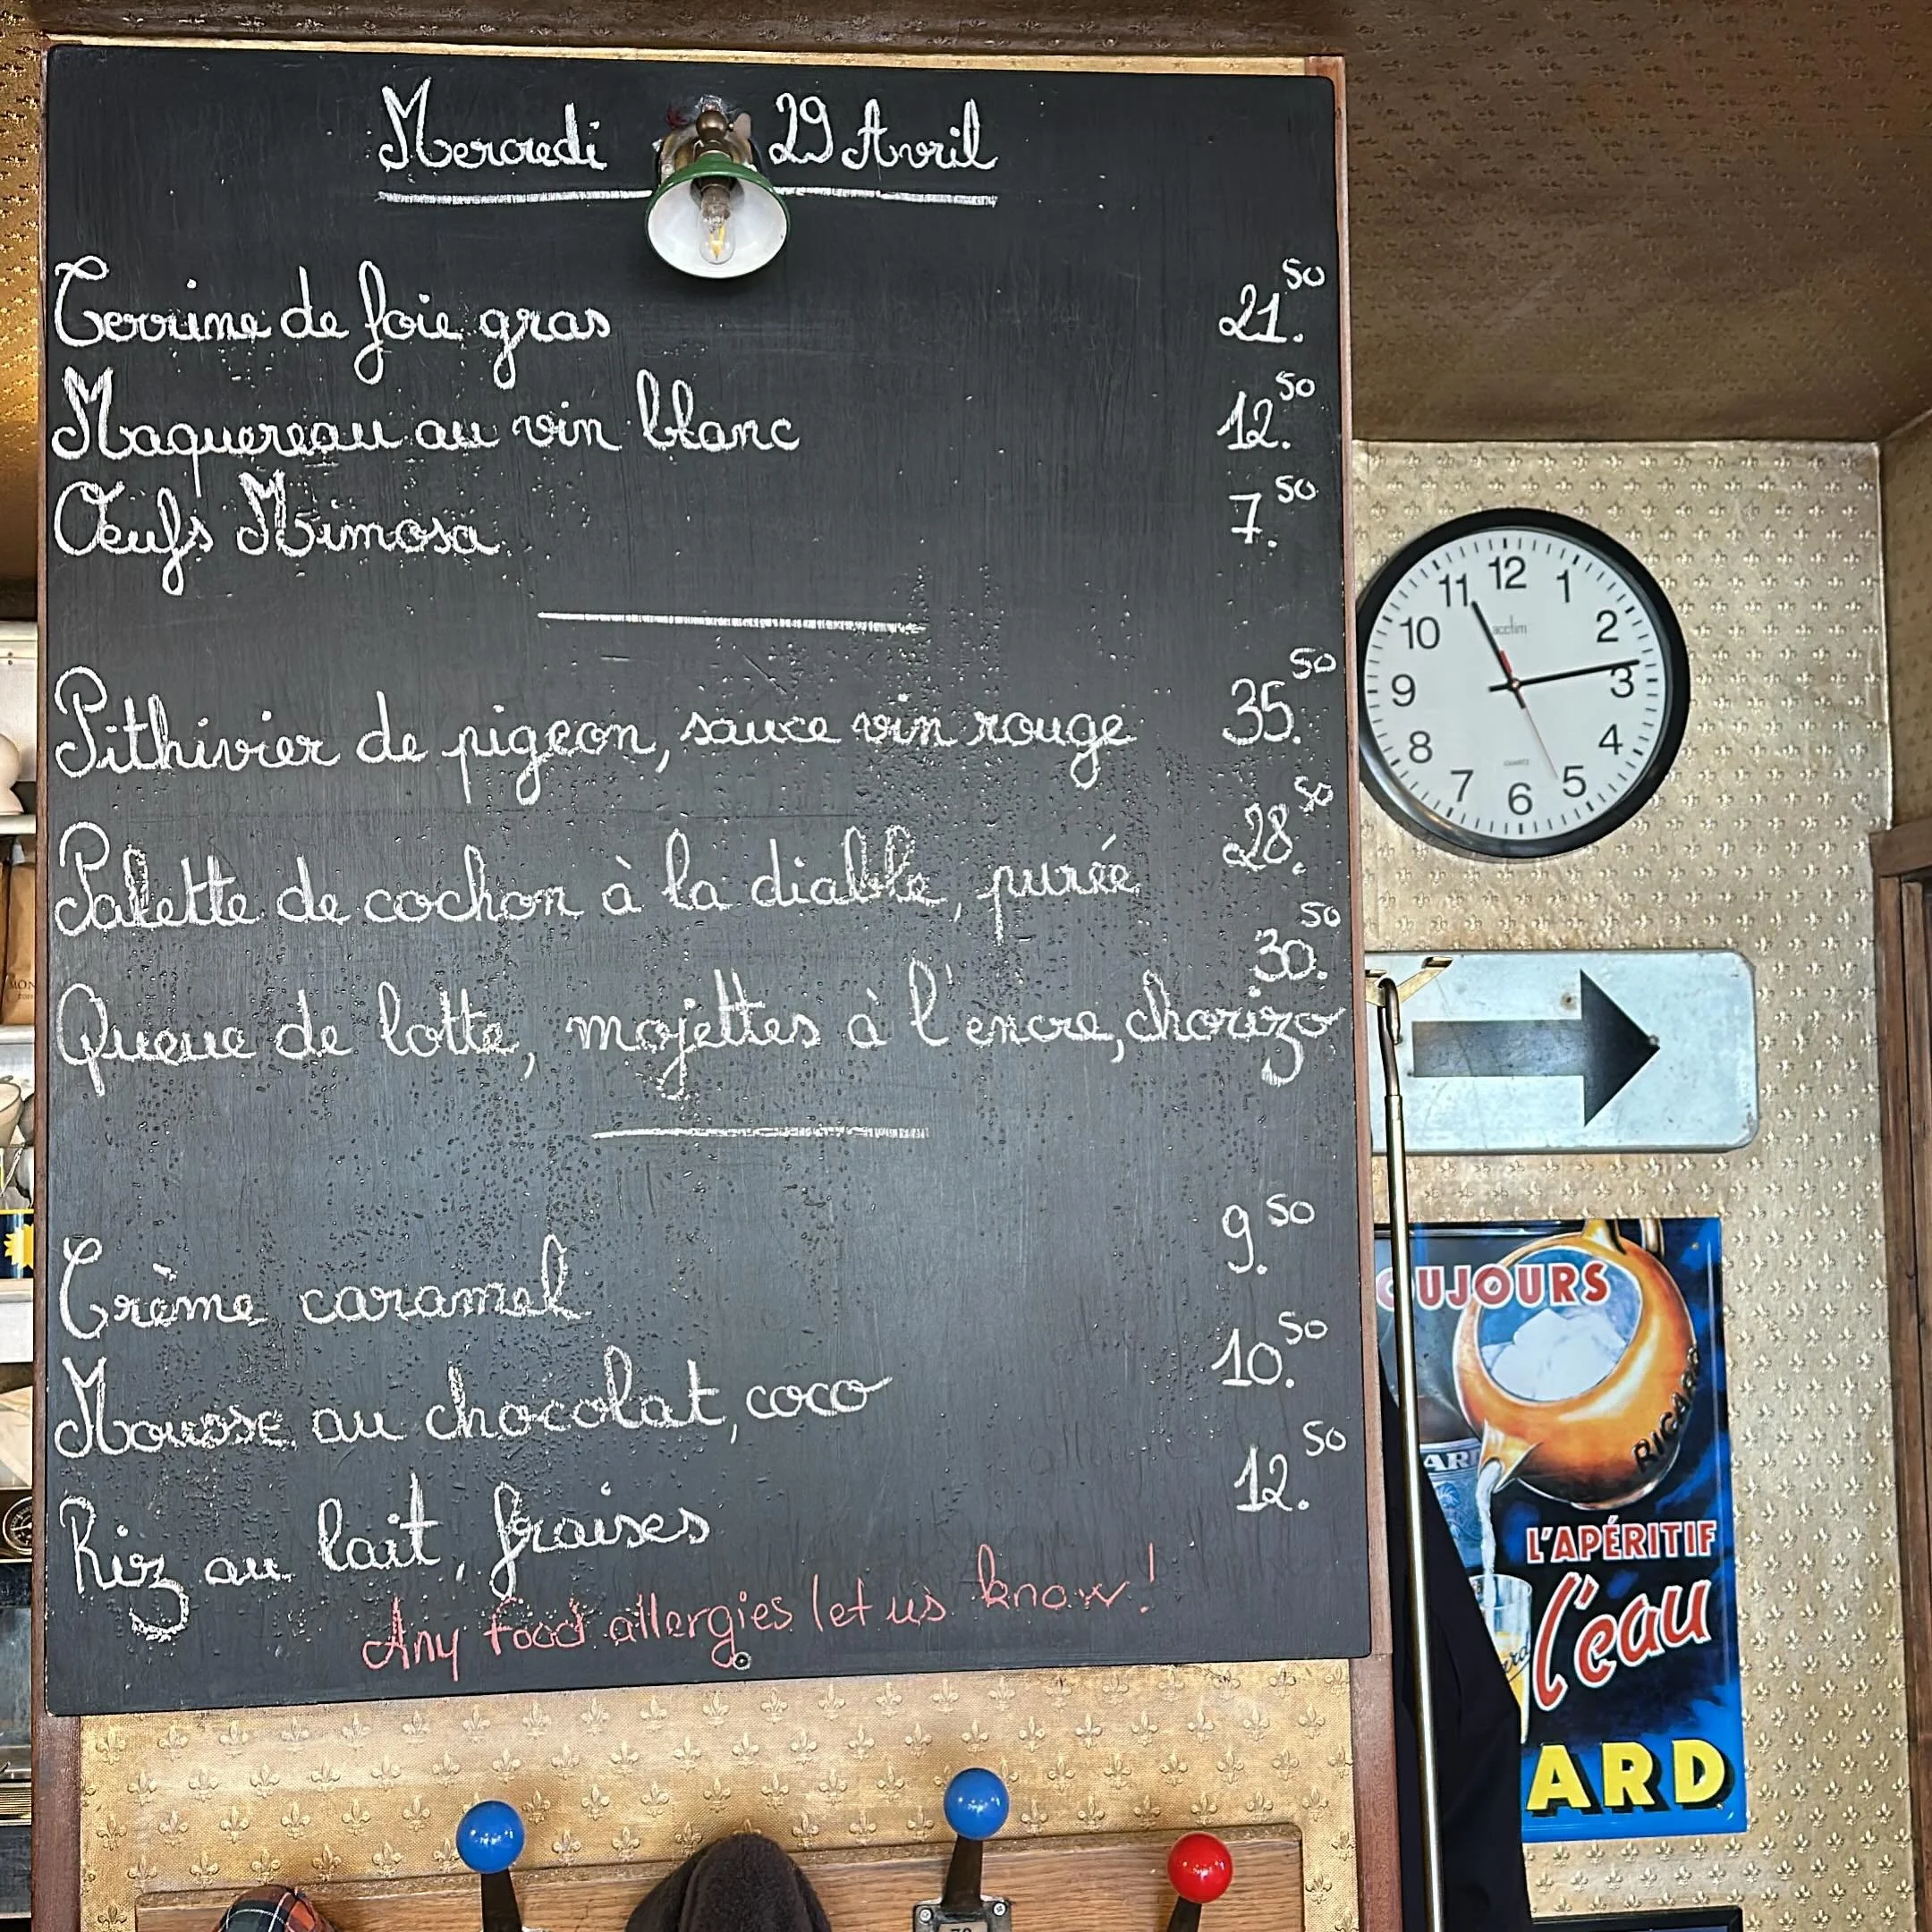 Mercredi 29 Avril
Terrine de foie gras 21.50
Maquereau au vin blanc 12.50
Œufs Mimosa 7.50
Pithivier de pigeon, sauce vin rouge 35.50
Palette de cochon à la diable, purée 28.50
Queue de lotte, mojettes à l'encre, chorizo 30.50
Crème caramel 9.50
Mousse au chocolat, coco 10.50
Riz au lait, fraises 12.50
Any food allergies let us know!
12
11 1
acctim
10 2
9 3
8 4
QUARTZ
7 5
6
OUJOURS
RICARD
ARD
L'APÉRITIF
l'eau
ARD